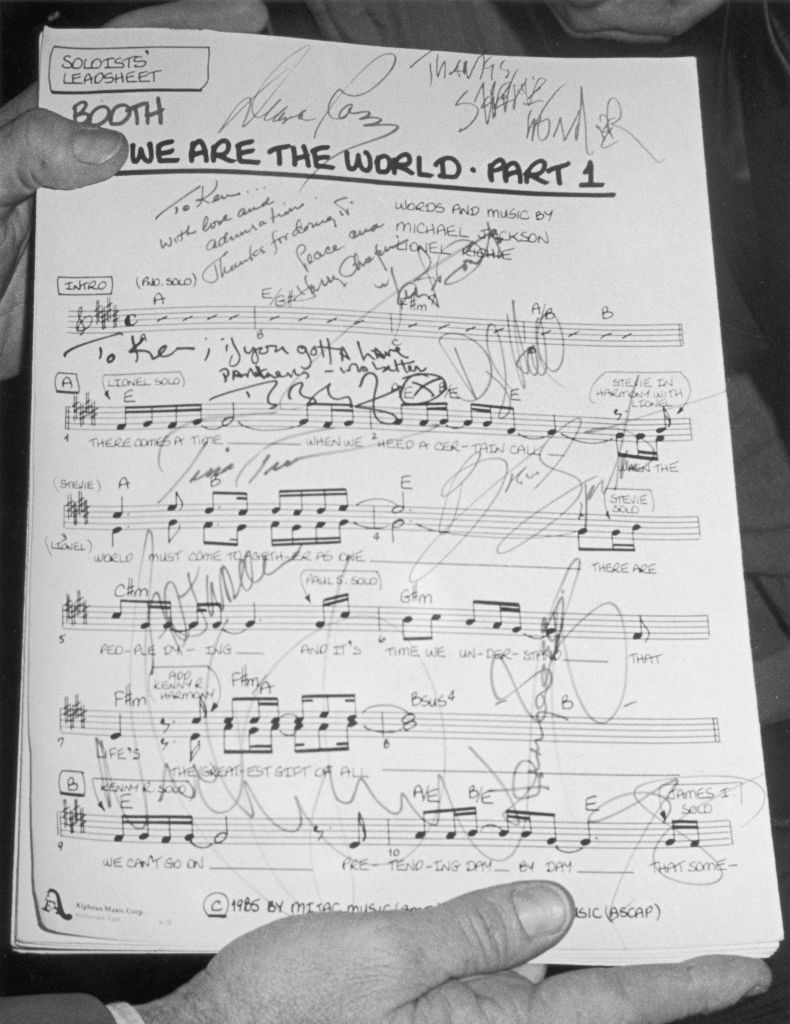 SOLOISTS'
LEADSHEET
BOOTH
Diana Ross
THANKS
STEVIE
WONDER
WE ARE THE WORLD · PART 1
To Ken...
with love and
admiration.
Thanks for doing it.
Peace and
Harry Chapin
WORDS AND MUSIC BY
MICHAEL JACKSON
LIONEL RICHIE
INTRO
(PNO. SOLO)
A E/G# F#m7 A/B B
To Ken; if you gotta have
partners - no better
A
(LIONEL SOLO)
E A/E B/E E
STEVIE IN
HARMONY WITH
LIONEL
1 2
THERE COMES A TIME WHEN WE HEED A CER-TAIN CALL WHEN THE
Tina Tur
(STEVIE)
A B E
STEVIE
SOLO
3 4
(LIONEL)
WORLD MUST COME TOGETH-ER AS ONE THERE ARE
C#m
PAUL S. SOLO
G#m
5 6
PEO-PLE DY-ING AND IT'S TIME WE UN-DER-STAND THAT
F#m
ADD
KENNY R.
HARMONY
F#m/A Bsus4 B
7 8
LIFE'S
THE GREAT-EST GIFT OF ALL
B
KENNY R. SOLO
E A/E B/E E
JAMES I.
SOLO
9 10
WE CAN'T GO ON PRE-TEND-ING DAY BY DAY THAT SOME-
Alpheus Music Corp.
© 1985 BY MIJAC MUSIC USIC (ASCAP)